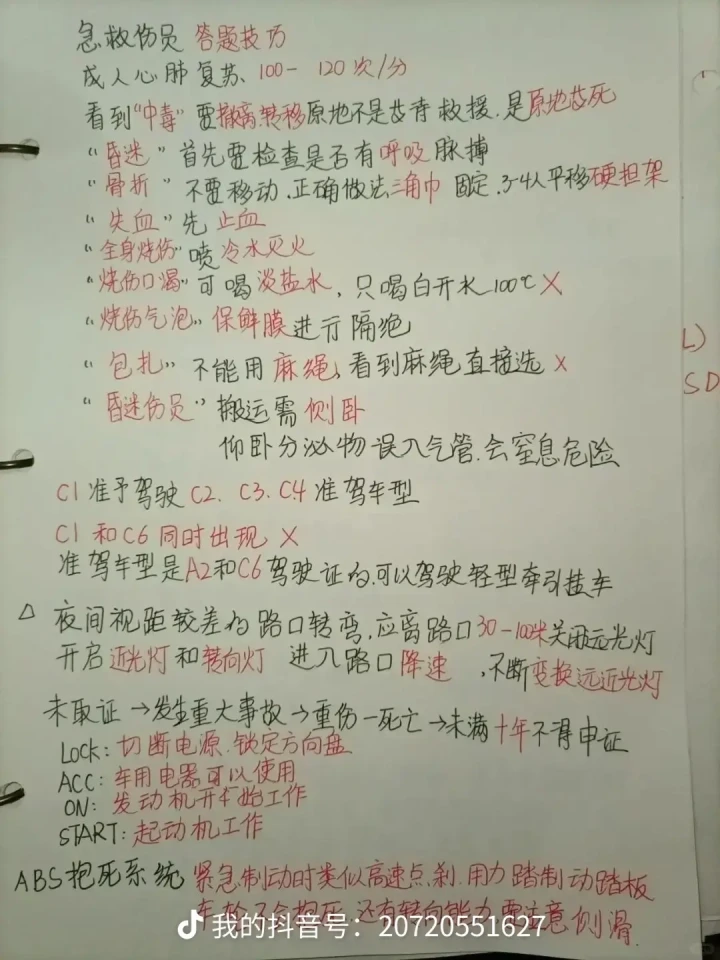 急救伤员 答题技巧
成人心肺复苏、100-120次/分
看到"中毒"要撤离转移原地不是
救援.是原地
"昏迷"首先要检查是否有呼吸脉搏
"骨折"不要移动.正确做法三角巾固定.3-4人平移硬担架
"失血"先止血
"全身烧伤"喷冷水灭火
"烧伤口渴"可喝淡盐水,只喝白开水100℃X
"烧伤气泡"保鲜膜进行隔绝
"包扎"不能用麻绳,看到麻绳直接选X
"昏迷伤员"搬运需侧卧
仰卧分泌物误入气管.会窒息危险
C1准予驾驶C2、C3、C4准驾车型
C1和C6同时出现X
准驾车型是A2和C6驾驶证的.可以驾驶轻型牵引挂车
△夜间视距较差的路口转弯,应离路口30-100米关闭远光灯
开启近光灯和转向灯 进入路口降速,不断变换远近光灯
未取证→发生重大事故→重伤-死亡→未满十年不得申证
LOCK:切断电源.锁定方向盘
ACC:车用电器可以使用
ON:发动机开始工作
START:起动机工作
ABS抱死系统 紧急制动时类似高速点刹.用力踏制动踏板
车轮不会抱死 还有转向能力 要注意侧滑
我的抖音号:20720551627
L)
SD